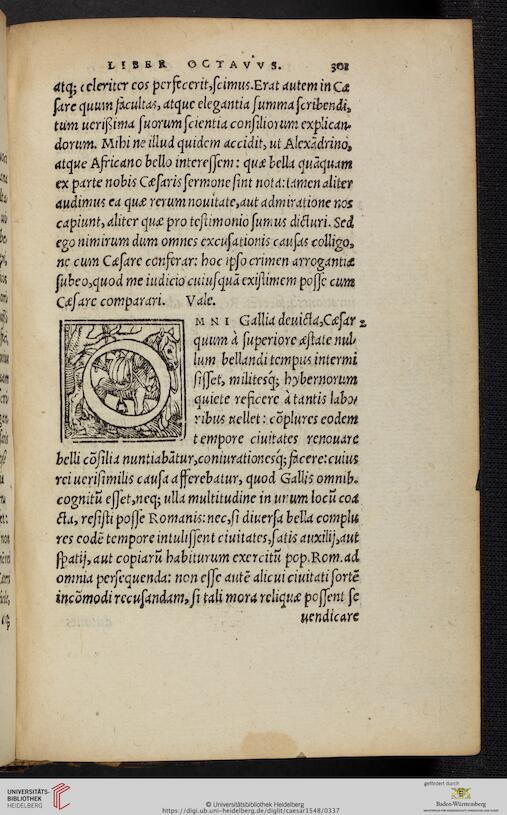 LIBER OCTAVVS. 301
atq; celeriter eos perfecerit, scimus. Erat autem in Cæ
sare quum facultas, atque elegantia summa scribendi,
tum uerißima suorum scientia consiliorum explican-
dorum. Mihi ne illud quidem accidit, ut Alexãdrino,
atque Africano bello interessem: quæ bella quãquam
ex parte nobis Cæsaris sermone sint nota: tamen aliter
audimus ea quæ rerum nouitate, aut admiratione nos
capiunt, aliter quæ pro testimonio sumus dicturi. Sed
ego nimirum dum omnes excusationis causas colligo,
ne cum Cæsare conferar: hoc ipso crimen arrogantiæ
subeo, quod me iudicio cuiusquã existimem posse cum
Cæsare comparari. Vale.
OMNI Gallia deuicta, Cæsar
quum à superiore æstate nul
lum bellandi tempus intermi
sisset, militesq; hybernorum
quiete reficere à tantis labo
ribus uellet: cõplures eodem
tempore ciuitates renouare
belli cõsilia nuntiabãtur, coniurationesq; facere: cuius
rei uerisimilis causa afferebatur, quod Gallis omnib.
cognitũ esset, neq; ulla multitudine in unum locũ coa
cta, resisti posse Romanis: nec, si diuersa bella complu
res eodẽ tempore intulissent ciuitates, satis auxilij, aut
spatij, aut copiarũ habiturum exercitũ pop. Rom. ad
omnia persequenda: non esse autẽ alicui ciuitati sortẽ
incõmodi recusandam, si tali mora reliquæ possent se
uendicare
UNIVERSITÄTS-
BIBLIOTHEK
HEIDELBERG
© Universitätsbibliothek Heidelberg
https://digi.ub.uni-heidelberg.de/diglit/caesar1548/0337
gefördert durch
Baden-Württemberg